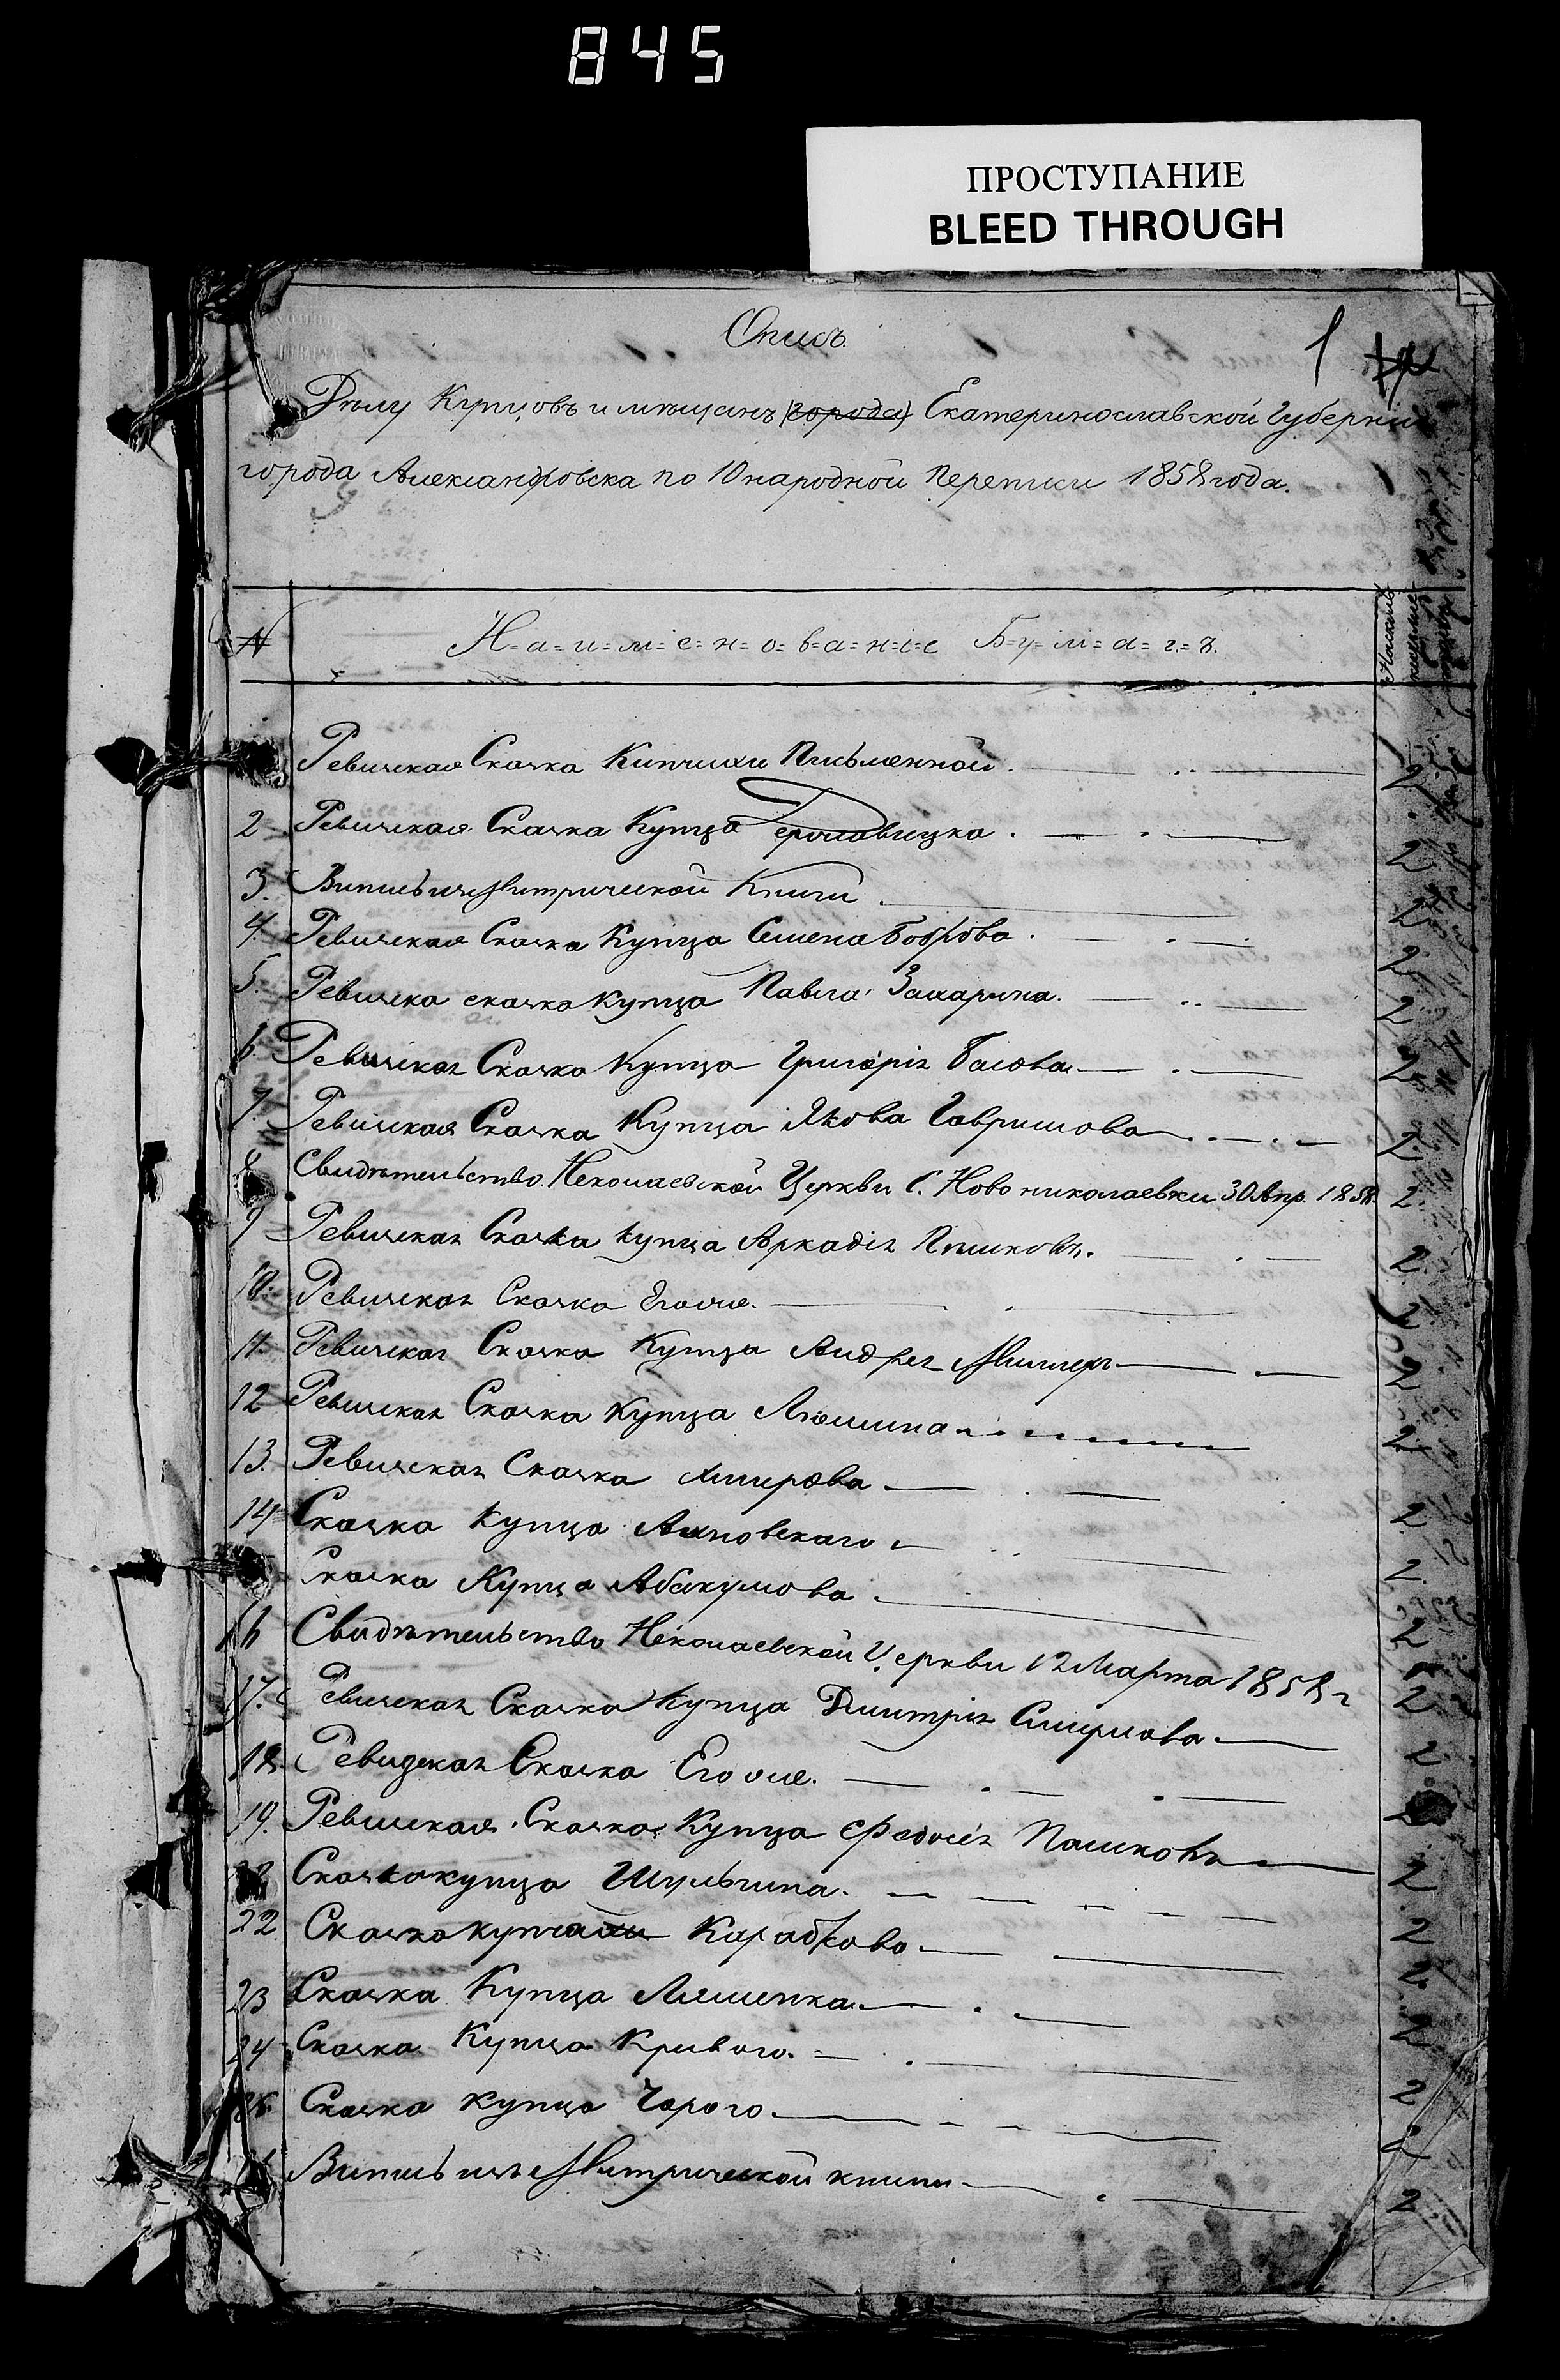 845
ПРОСТУПАНИЕ
BLEED THROUGH
Опись
1
Дѣлу Купцовъ и мѣщанъ (города) Екатеринославской Губерніи
города Александровска по 10 народной Переписи 1858 года.
№ Н=а=и=м=е=н=о=в=а=н=і=е Б=у=м=а=г=ъ.
Ревизская Сказка Купчихи Письменной. 2
2 Ревизская Сказка Купца 2
3. Випись изъ Митрической Книги 2
4. Ревизская Сказка Купца Семена Боброва. 2
5. Ревизка сказка купца Павла Захарина. 2
6. Ревизская Сказка Купца Григорія Басова 2
7. Ревизская Сказка Купца Якова Гаврилова 2
8 Свидѣтельство Николаевской Церкви С. Новониколаевки 30 Апр. 1858. 2
9 Ревизская Сказка купца Аркадія 2
10. Ревизская Сказка Егоже. 2
11. Ревизская Сказка Купца Андрея Миллеръ 2
12 Ревизская Сказка Купца 2
13. Ревизская Сказка 2
14 Сказка Купца 2
Сказка Купца Абакумова 2
16 Свидѣтельство Николаевской Церкви 12 Марта 1858 г 2
17. Ревизская Сказка Купца Дмитрія Смирнова 2
18. Ревизская Сказка Егоже.
19. Ревизская Сказка Купца Федосѣя Пашковъ 2
Сказка купца Шульгина. 2
22 Сказка 2
23 Сказка Купца Ляшенка 2
24 Сказка Купца Криваго. 2
Сказка купца 2
Випись изъ Митрической книги 2